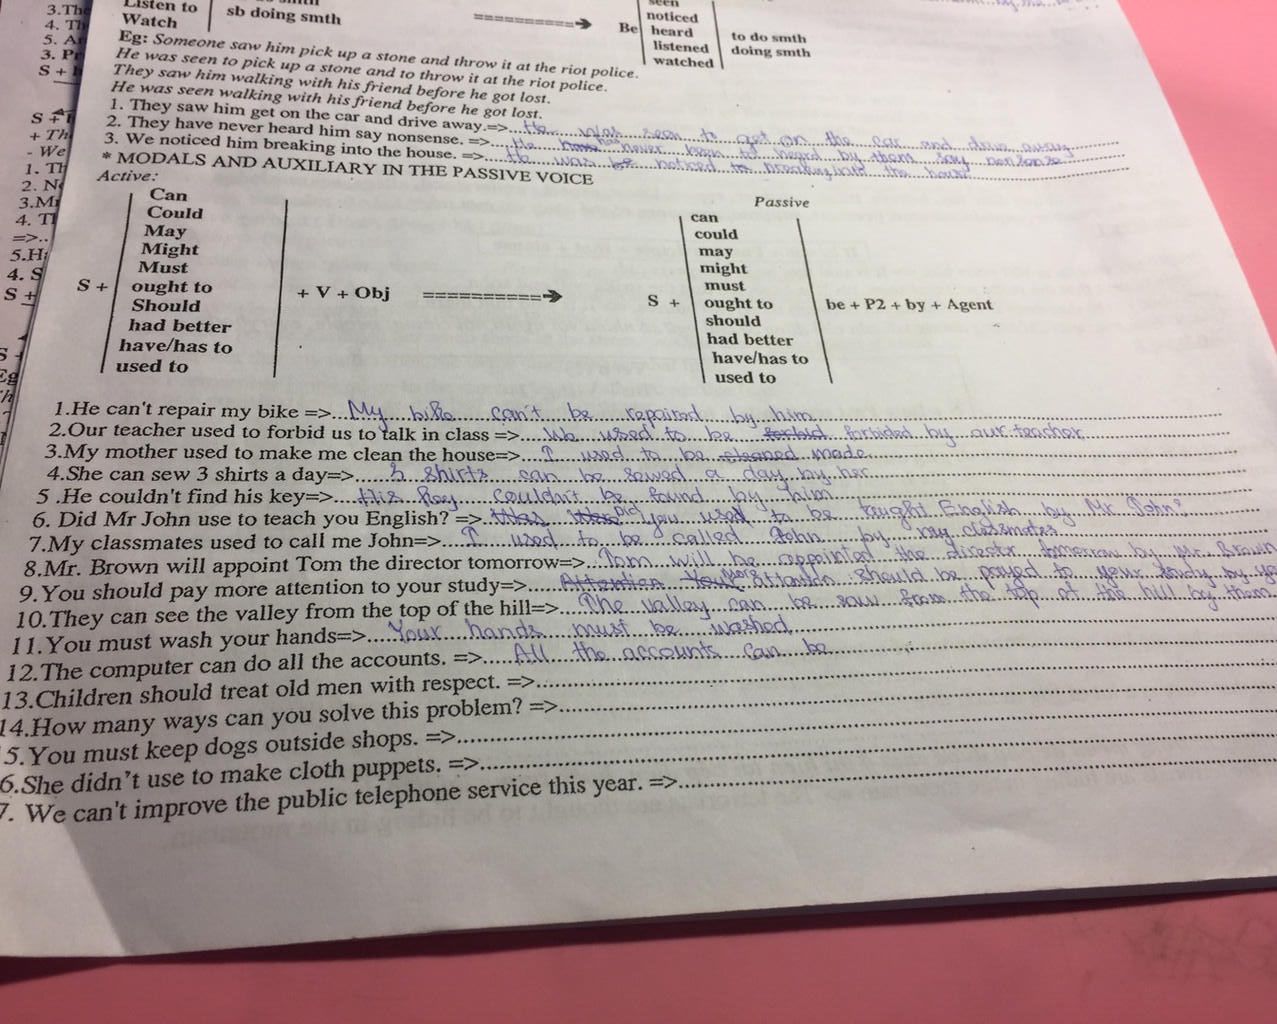 3.The
4. Th
5. A
3. P
S +
Listen to
Watch
sb doing smth
seen
noticed
Be heard
listened
watched
to do smth
doing smth
Eg: Someone saw him pick up a stone and throw it at the riot police.
He was seen to pick up a stone and to throw it at the riot police.
They saw him walking with his friend before he got lost.
He was seen walking with his friend before he got lost.
1. They saw him get on the car and drive away.=>...He was seen to get on the car and drive away
2. They have never heard him say nonsense. =>...He has never been heard by them say nonsense
3. We noticed him breaking into the house. =>...He was noticed breaking into the house
* MODALS AND AUXILIARY IN THE PASSIVE VOICE
Active:
Passive
S +
Can
Could
May
Might
Must
ought to
Should
had better
have/has to
used to
+ V + Obj
==========>
S +
can
could
may
might
must
ought to
should
had better
have/has to
used to
be + P2 + by + Agent
1.He can't repair my bike =>...My bike can't be repaired by him
2.Our teacher used to forbid us to talk in class =>...We used to be forbided by our teacher
3.My mother used to make me clean the house=>...I used to be made
4.She can sew 3 shirts a day=>...3 shirts can be sewed a day by her
5 .He couldn't find his key=>...His key couldn't be found by him
6. Did Mr John use to teach you English? =>...Did you used to be taught English by Mr John?
7.My classmates used to call me John=>...I used to be called John by my classmates
8.Mr. Brown will appoint Tom the director tomorrow=>...Tom will be appointed the director tomorrow by Mr. Brown
9.You should pay more attention to your study=>...attention should be payed to your study by
10.They can see the valley from the top of the hill=>...The valley can be saw from the top of the hill by them
11.You must wash your hands=>...Your hands must be washed
12.The computer can do all the accounts. =>...All the accounts can be
13.Children should treat old men with respect. =>...
14.How many ways can you solve this problem? =>...
5.You must keep dogs outside shops. =>...
6.She didn't use to make cloth puppets. =>...
7. We can't improve the public telephone service this year. =>...